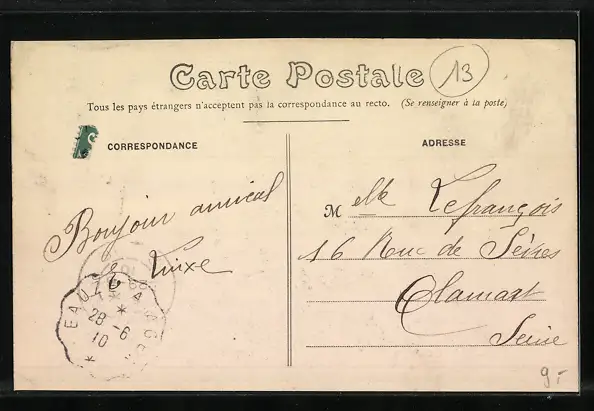 Carte Postale
13
Tous les pays étrangers n'acceptent pas la correspondance au recto. (Se renseigner à la poste)
CORRESPONDANCE
ADRESSE
Bonjour amical
M elle Lefrançois
16 Rue de Sèvres
Clamart
Seine
EAUZE
28-6
10
9.-